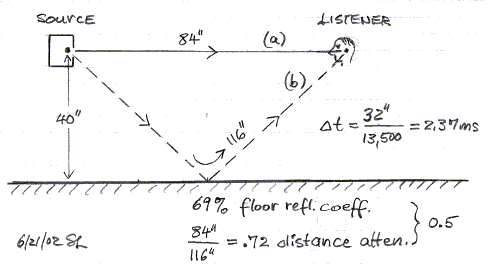 SOURCE
LISTENER
84"
(a)
(b)
40"
116"
Δt = 32" / 13,500 = 2.37ms
69% floor refl. coeff.
84" / 116" = .72 distance atten. } 0.5
6/21/02 SL